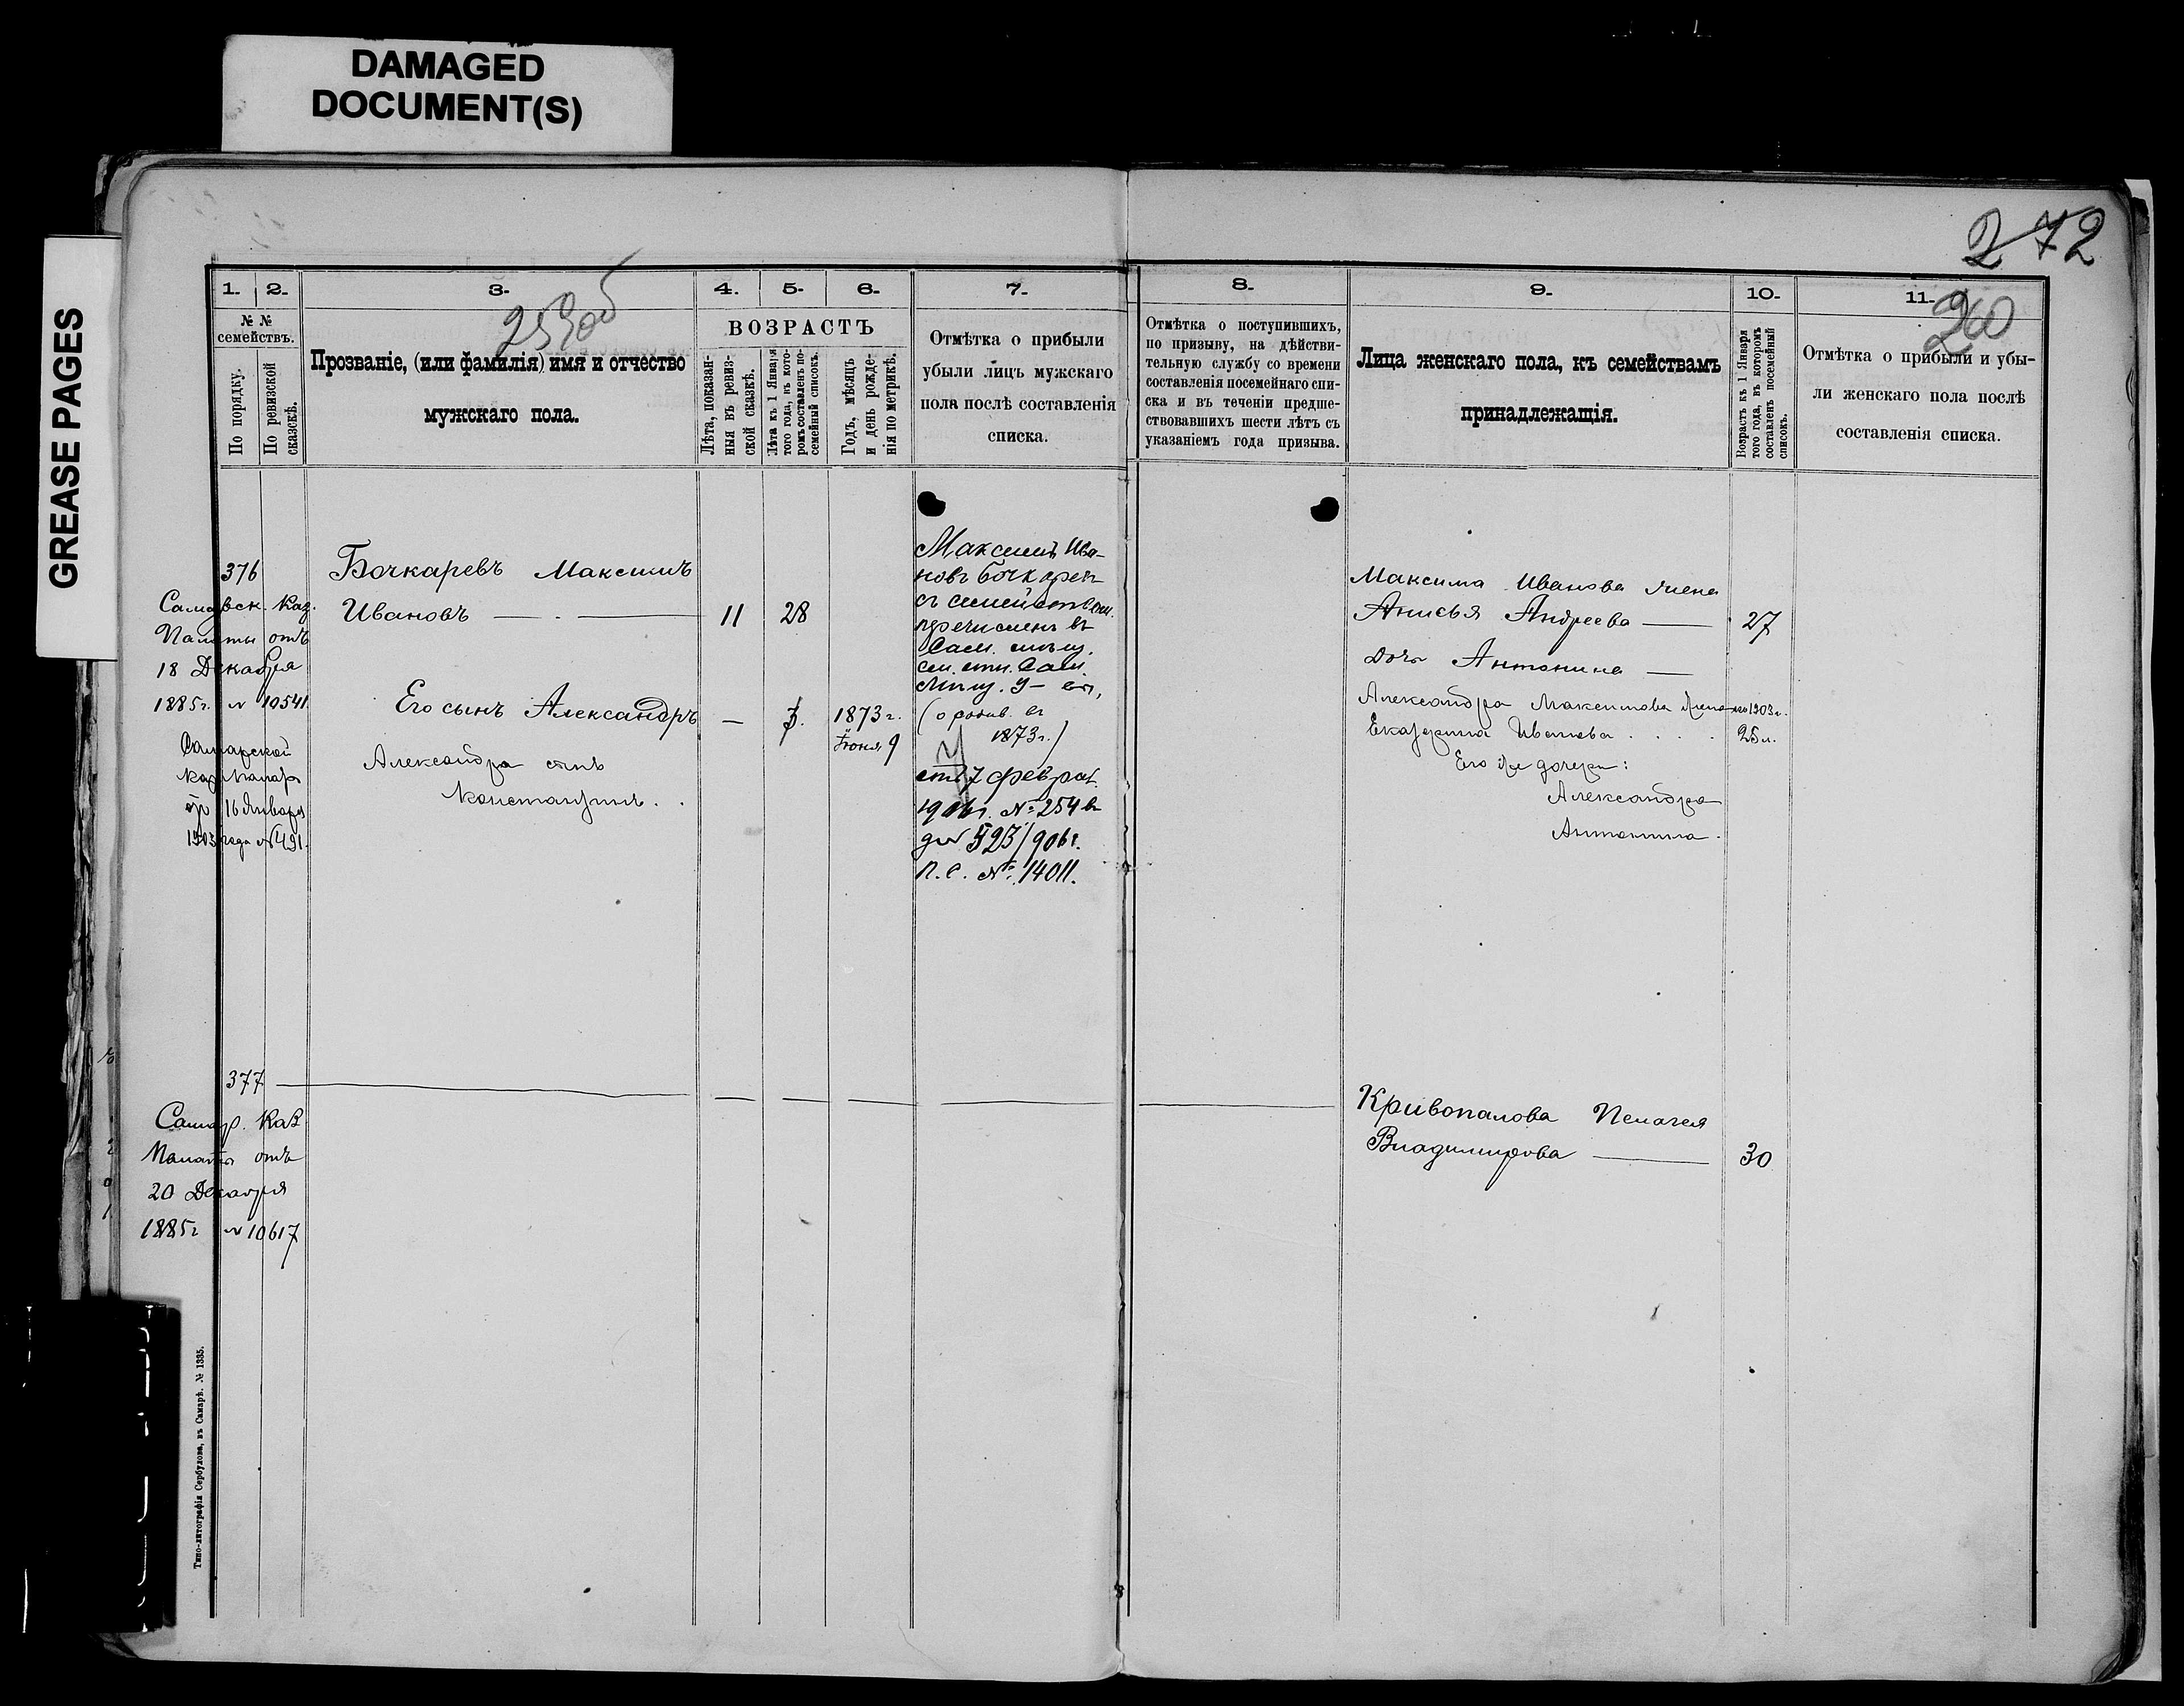 DAMAGED
DOCUMENT(S)
GREASE PAGES
272
1. 2. 3. 4. 5. 6. 7. 8. 9. 10. 11.
259об
260
№ №
семействъ.
По порядку.
По ревизской
сказкѣ.
Прозваніе, (или фамилія) имя и отчество
мужскаго пола.
ВОЗРАСТЪ
Лѣта, показан-
ныя въ ревиз-
ской сказкѣ.
Лѣта къ 1 Января
того года, въ кото-
ромъ составленъ по-
семейный списокъ.
Годъ, мѣсяцъ
и день рожде-
нія по метрикѣ.
Отмѣтка о прибыли
убыли лицъ мужскаго
пола послѣ составленія
списка.
Отмѣтка о поступившихъ,
по призыву, на дѣйстви-
тельную службу со времени
составленія посемейнаго спи-
ска и въ теченіи предше-
ствовавшихъ шести лѣтъ съ
указаніемъ года призыва.
Лица женскаго пола, къ семействамъ
принадлежащія.
Возрастъ къ 1 Января
того года, въ которомъ
составленъ посемейный
списокъ.
Отмѣтка о прибыли и убы-
ли женскаго пола послѣ
составленія списка.
376
Самарск. Каз.
Палаты отъ
18 Декабря
1885г. № 10541.
Самарской
Каз Палаты
от 16 Января
1903 года № 491.
Бочкаревъ Максимъ
Ивановъ 11 28
Его сынъ Александръ — 3. 1873 г.
Іюня 9
Александра сынъ
Константинъ.
Максимъ Ива-
новъ Бочкарев
съ семейством
перечисленъ въ
Сам.
Сам.
(о родив. въ
1873г.)
от 7 феврал.
1906г. № 254 въ
д№ 523/906г.
п.с. №. 14011.
Максима Иванова жена
Анисья Андреева 27
Дочь Антонина
Александра Максимова жена 1903 г.
Екатерина Иванова 25 л.
Его же дочери:
Александра
Антонина.
377
Самар. Каз
Палаты отъ
20 Декабря
1885г № 10617
Кривопалова Пелагея
Владимирова 30
Типо-литографія Сербулова, въ Самарѣ. № 1335.